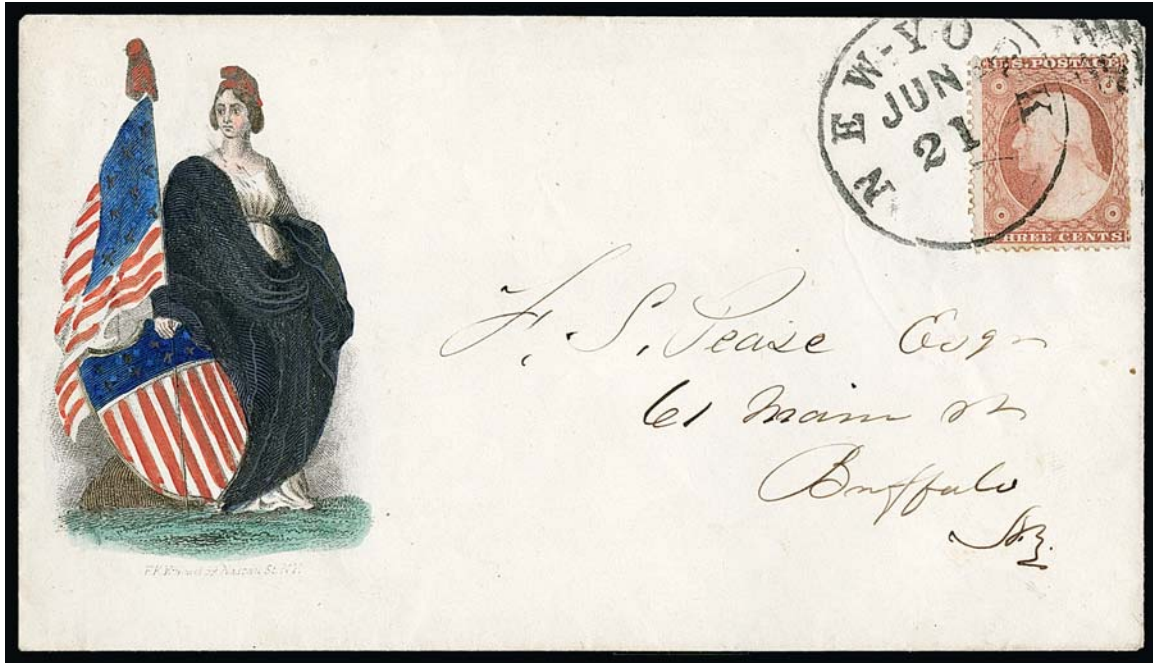 NEW-YO
JUN
21
Y
U.S. POSTAGE
THREE CENTS
F. S. Pease Esqr
61 Main St
Buffalo
N.Y.
Nassau St. N.Y.